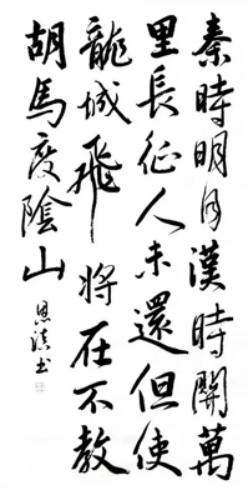 秦時明月漢時關萬
里長征人未還但使
龍城飛將在不教
胡馬度陰山
恩 书